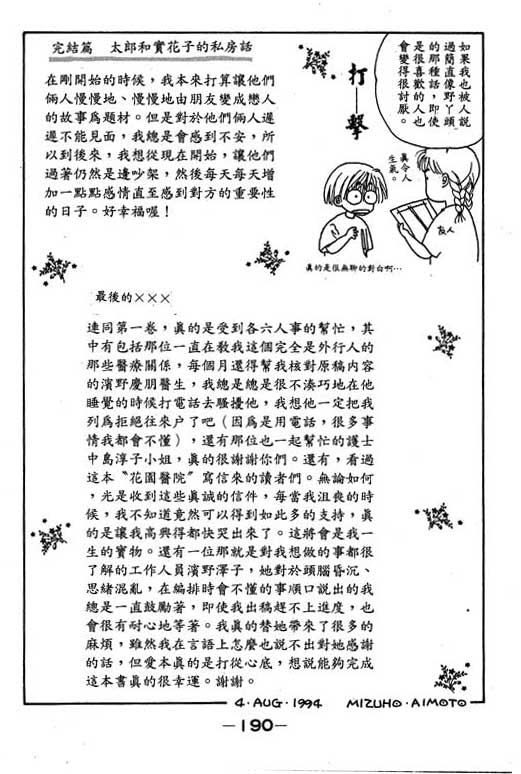 完結篇　太郎和實花子的私房話
在剛開始的時候，我本來打算讓他們
倆人慢慢地、慢慢地由朋友變成戀人
的故事爲題材。但是對於他們倆人遲
遲不能見面，我總是會感到不安，所
以到後來，我想從現在開始，讓他們
過著仍然是邊吵架，然後每天每天增
加一點點感情直至感到對方的重要性
的日子。好幸福喔！
打─擊
如果我也被人說
過簡直像野丫頭
的那種話，即使
是很喜歡的人也
會變得很討厭。
眞令人
生氣。
友人
眞的是很無聊的對白啊…
最後的×××
連同第一卷，眞的是受到各六人事的幫忙，其
中有包括那位一直在敎我這個完全是外行人的
那些醫療關係，每個月還得幫我核對原稿内容
的濱野慶朋醫生，我總是總是很不湊巧地在他
睡覺的時候打電話去騷擾他，我想他一定把我
列爲拒絕往來户了吧（因爲是用電話，很多事
情我都會不懂），還有那位也一起幫忙的護士
中島淳子小姐，眞的很謝謝你們。還有，看過
這本〝花園醫院〞寫信來的讀者們。無論如何
，光是收到這些眞誠的信件，每當我沮喪的時
候，我不知道竟然可以得到如此多的支持，眞
的是讓我高興得都快哭出來了。這將會是我一
生的寶物。還有一位那就是對我想做的事都很
了解的工作人員濱野澤子，她對於頭腦昏沉、
思緒混亂，在編排時會不懂的事順口說出的我
總是一直鼓勵著，即使我出稿趕不上進度，也
會很有耐心地等著。我眞的替她帶來了很多的
麻煩，雖然我在言語上怎麼也說不出對她感謝
的話，但愛本眞的是打從心底，想說能夠完成
這本書眞的很幸運。謝謝。
4・AUG・1994　MIZUHO・AIMOTO
—190—